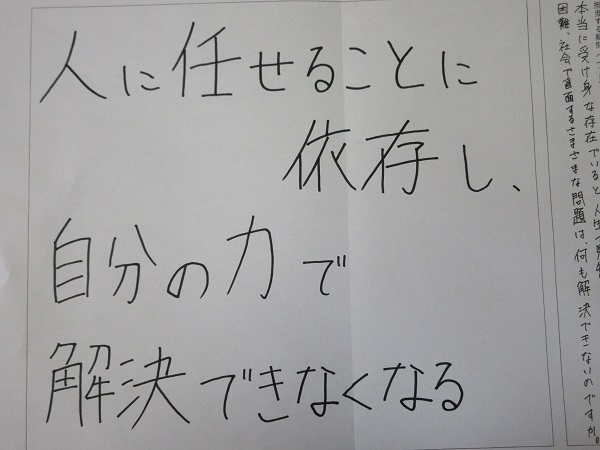 人に任せることに
依存し、
自分の力で
解決できなくなる
本当に受け身な存在でいると、人生で
困難、社会で直面するさまざまな問題は、何も解決できないのですか。